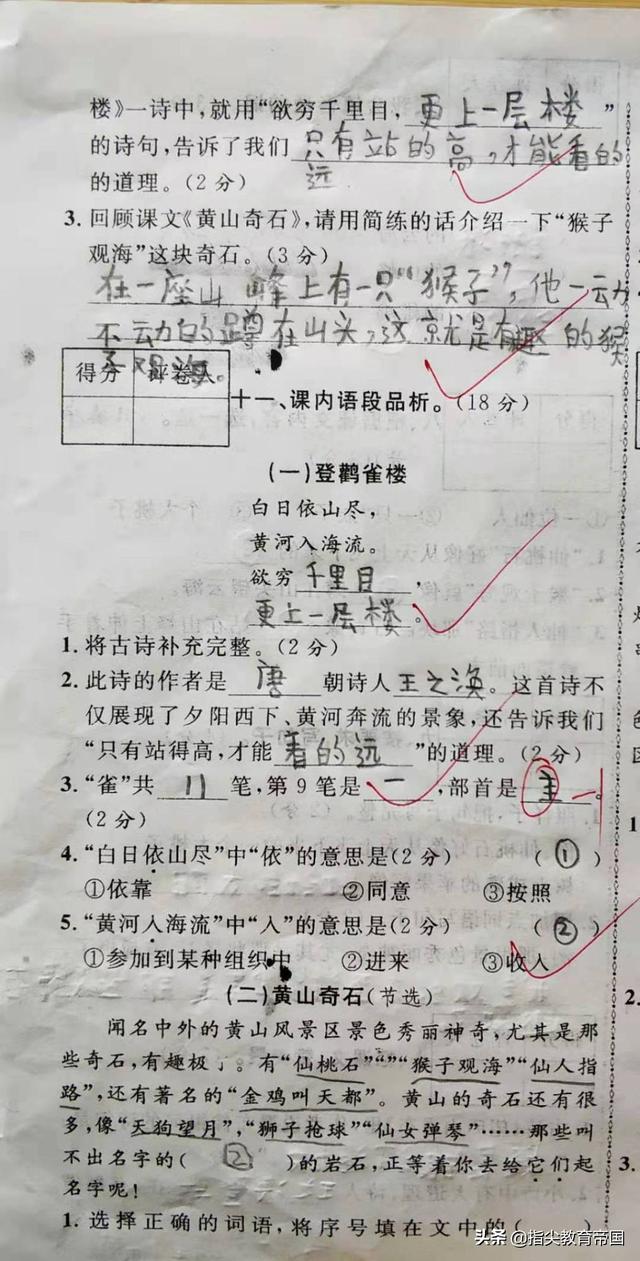 楼》一诗中,就用“欲穷千里目,更上一层楼”
的诗句,告诉了我们只有站的高,才能看的
远
的道理。(2分)
3.回顾课文《黄山奇石》,请用简练的话介绍一下“猴子
观海”这块奇石。(3分)
在一座山峰上有一只“猴子”,他一动
不动的蹲在山头,这就是有趣的猴
子观海。
得分 评卷人
十一、课内语段品析。(18分)
(一)登鹳雀楼
白日依山尽,
黄河入海流。
欲穷千里目,
更上一层楼。
1.将古诗补充完整。(2分)
2.此诗的作者是唐朝诗人王之涣。这首诗不
仅展现了夕阳西下、黄河奔流的景象,还告诉我们
“只有站得高,才能看的远”的道理。(2分)
3.“雀”共11笔,第9笔是一,部首是主。
(2分)
4.“白日依山尽”中“依”的意思是(2分) (①)
①依靠 ②同意 ③按照
5.“黄河入海流”中“入”的意思是(2分) (②)
①参加到某种组织中 ②进来 ③收入
(二)黄山奇石(节选)
闻名中外的黄山风景区景色秀丽神奇,尤其是那
些奇石,有趣极了。有“仙桃石”“”“猴子观海”“仙人指
路”,还有著名的“金鸡叫天都”。黄山的奇石还有很
多,像“天狗望月”,“狮子抢球”“仙女弹琴”……那些叫
不出名字的(②)的岩石,正等着你去给它们起
名字呢!
1.选择正确的词语,将序号填在文中的( )
头条@指尖教育帝国